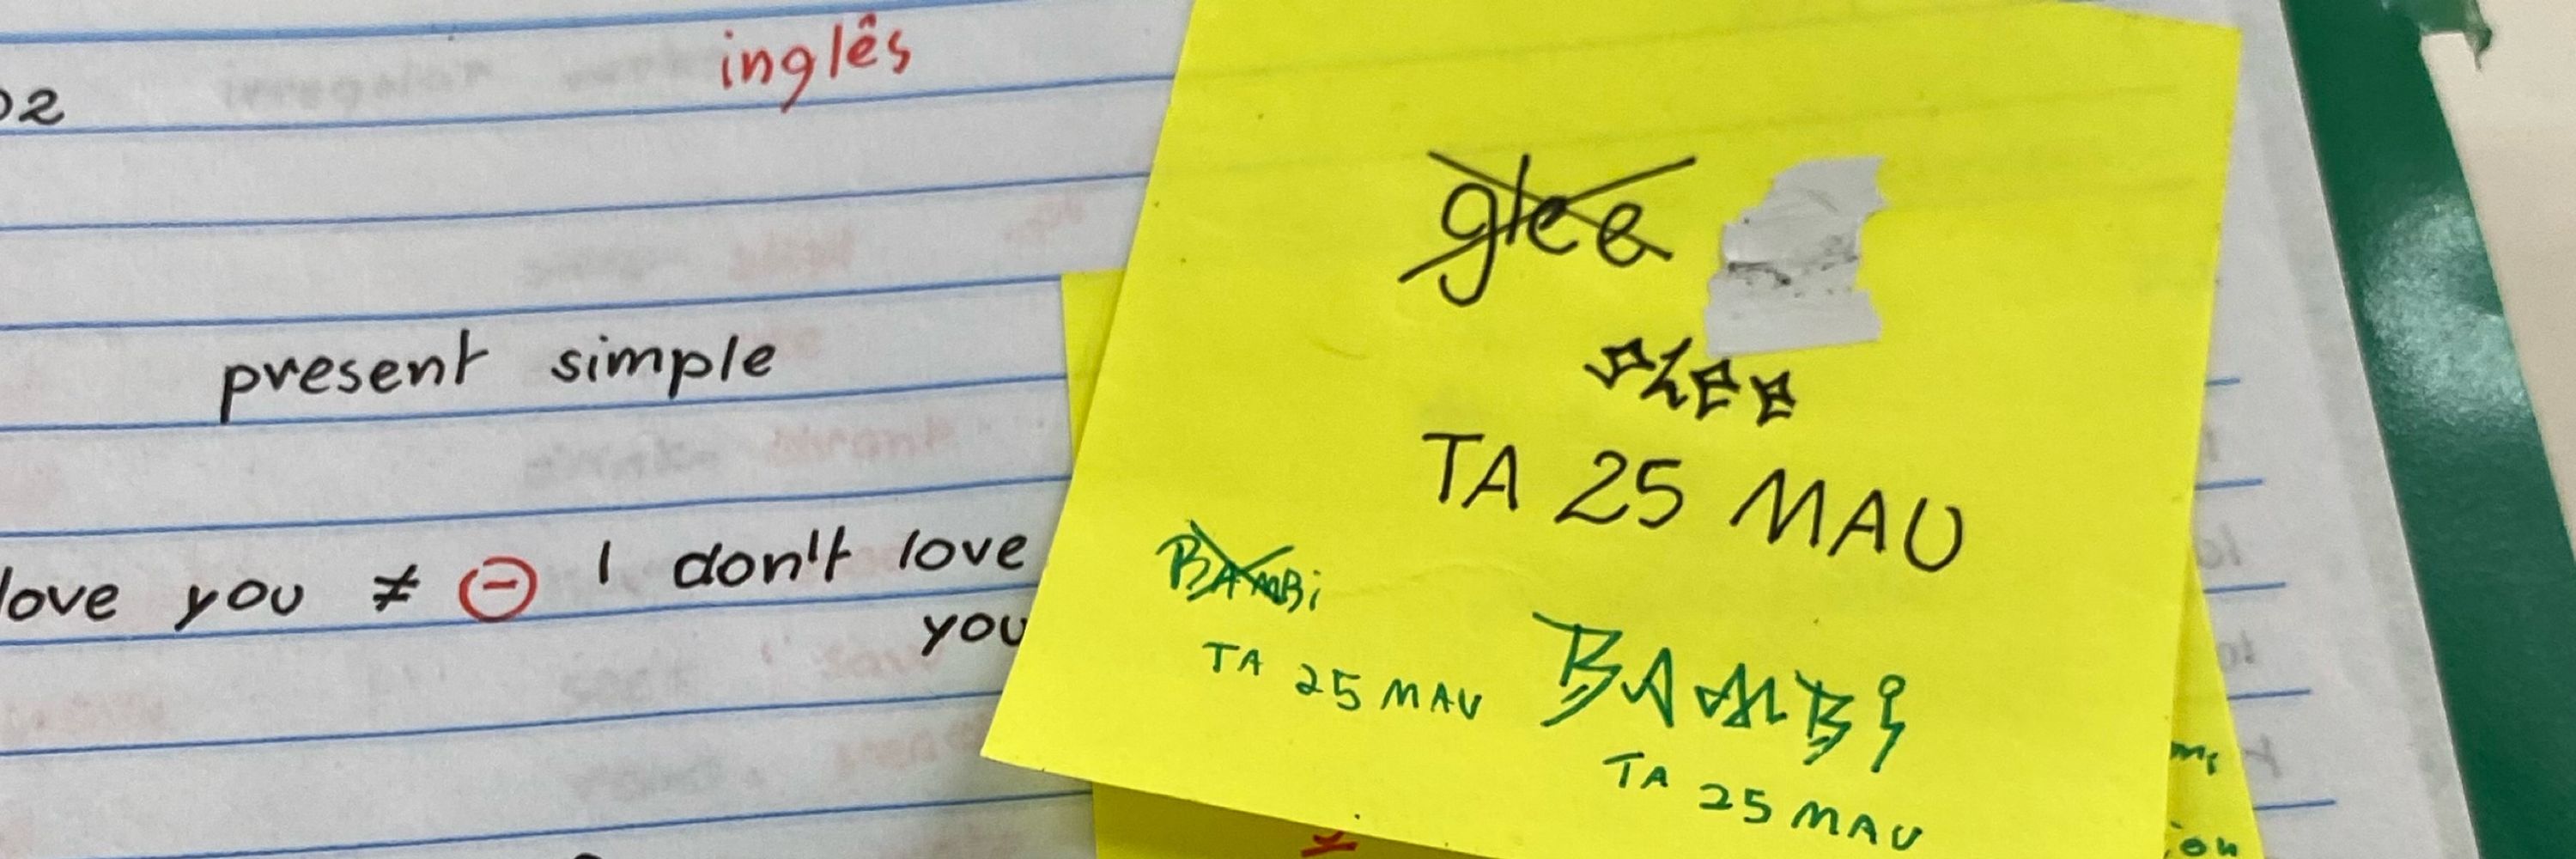 inglês
02
present simple
love you ≠ ⊖ I don't love
you
glee
GLEE
TA 25 MAU
BAMBi
TA 25 MAU
BAMBi
TA 25 MAU